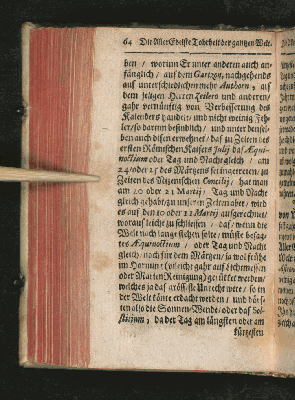 64 Die Aller Edelste Torheit der gantzen Welt.
ben / worinn Er unter anderen auch an-
fänglich / auß dem Garzon, nachgehends
auß unterschiedlichen mehr Authorn, auß
dem seligen Herren Zeilern und anderen/
gahr vernünftig von Verbesserung des
Kalenders handlet/ und nicht weinig Feh-
ler/so darinn befindlich / und unter densel-
ben auch disen erwehnet/ daß zu Zeiten des
ersten Römischen Kaisers Julij daß Æqui-
noctium oder Tag und Nachtgleich / am
24/oder 25 des Märtzens sei eingereten; zu
Zeiten des Nizenischen Concilij, hat man
am 20 oder 21 Martij, Tag und Nacht
gleich gehabt; zu unseren Zeiten aber/ wird
es auf den 10 oder 11 Martij außgerechnet/
woraus leicht zu schliessen / daß/ wenn die
Welt noch lange stehen solte/ müste besag-
tes Æquinoctium, oder Tag und Nacht
gleich/ noch für dem Märtzen/ ja wol frühe
im Hornung (vieleicht gahr auf Lichtmessen
oder Marien Reinigung) gerükket werden/
welches ja das gröss-ste Unrecht wäre/ so in
der Welt könte erdacht werden / und dörf-
ten also die Sonnen-Wende/ oder daß Sol-
stitium, da der Tag am längsten oder am
kürtzesten